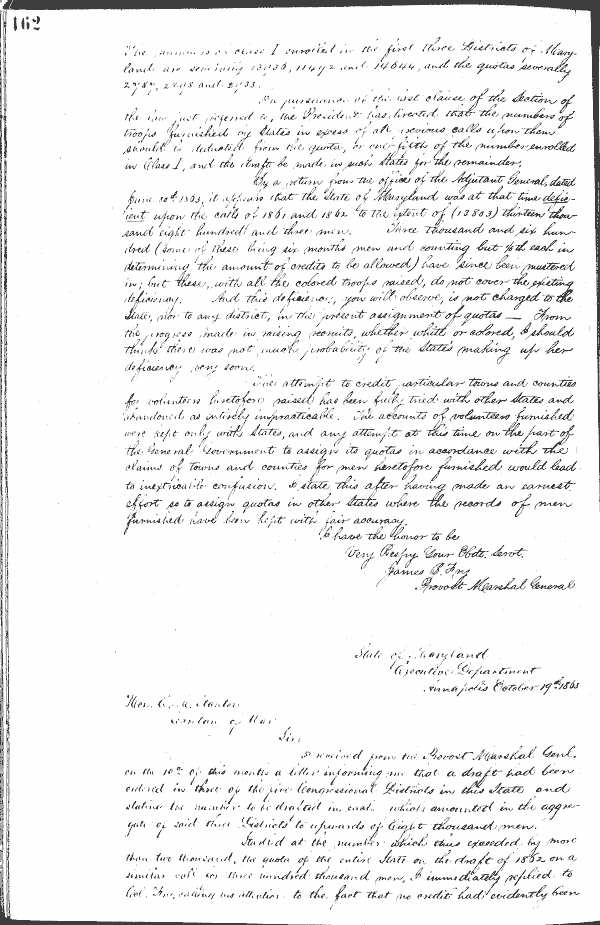 162
The numbers of class I enrolled in the first three Districts of Mary-
land are severally 11492 and 14644, and the quotas severally
and
In pursuance of the last clause of the Section of
the law just referred to, the President has directed that the numbers of
troops furnished by States in excess of all previous calls upon them
should be deducted from the quota, or one fifth of the number enrolled
in Class I, and the draft be made in such States for the remainder.
By a return from the office of the Adjutant General, dated
June 20th 1863, it appears that the State of Maryland was at that time defici-
ent upon the calls of 1861 and 1862 to the extent of (13803) thirteen thou-
sand eight hundred and three men. Three thousand and six hun-
dred (some of these being six months men and counting but each in
determining the amount of credits to be allowed) have since been mustered
in; but these, with all the colored troops raised, do not cover the existing
deficiency. And this deficiency, you will observe, is not charged to the
State, nor to any district, in the present assignment of quotas — From
the progress made in raising recruits, whether white or colored, I should
think there was not much probability of the State's making up her
deficiency very soon.
The attempt to credit particular towns and counties
for volunteers heretofore raised has been fully tried with other States and
abandoned as entirely impracticable. The accounts of volunteers furnished
were kept only with States, and any attempt at this time on the part of
the General Government to assign its quotas in accordance with the
claims of towns and counties for men heretofore furnished would lead
to inextricable confusion. I state this after having made an earnest
effort so to assign quotas in other States where the records of men
furnished have been kept with fair accuracy.
I have the honor to be
Very Respy. Your Obdt. Servt.
James B. Fry
Provost Marshal General
State of Maryland
Executive Department
Annapolis October 19th 1863
Hon. E. M. Stanton
Secretary of War
Sir
I received from the Provost Marshal Genl.
on the 10th of this month a letter informing me that a draft had been
ordered in three of the five Congressional Districts in this State and
stating the number to be drafted in each which amounted in the aggre-
gate of said three Districts to upwards of Eight thousand men.
Startled at the number which thus exceeded by more
than two thousand, the quota of the entire State on the draft of 1862 on a
similar call for three hundred thousand men, I immediately replied to
Col. Fry, calling his attention to the fact that no credit had evidently been